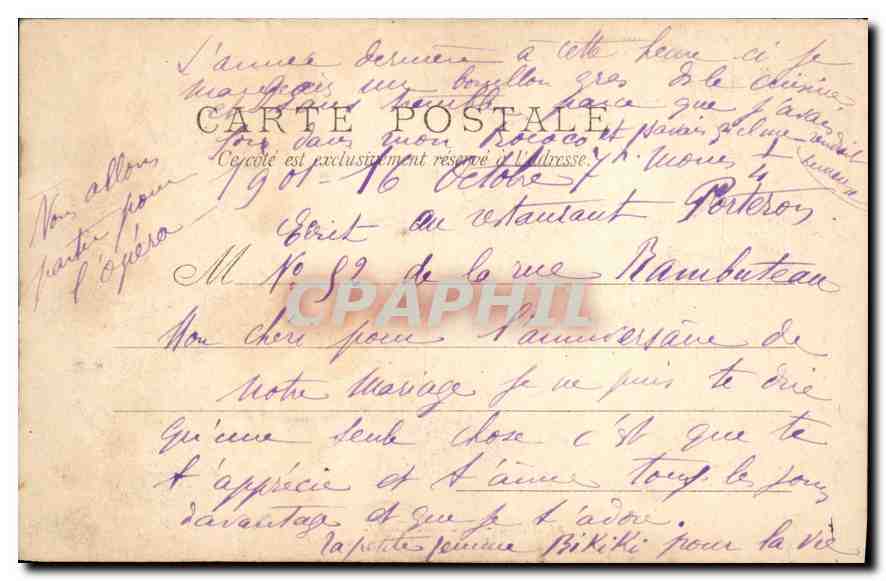 L'année dernière à cette heure ci je
mangeais un bouillon gras de la cuisine
parce que j'avais
CARTE POSTALE
dans mon Rococo et
Ce côté est exclusivement réservé à l'adresse.
1901 - 16 Octobre 7h moins 1/4
Nous allons
partir pour
l'opéra
Ecrit au restaurant Porteron
M No 52 de la rue Rambuteau
CPAPHIL
Mon cheri pour l'anniversaire de
notre mariage je ne puis te dire
qu'une seule chose c'est que te
t'apprécie et t'aime tous les jours
davantage et que je t'adore.
ta petite femme BiKiKi pour la vie